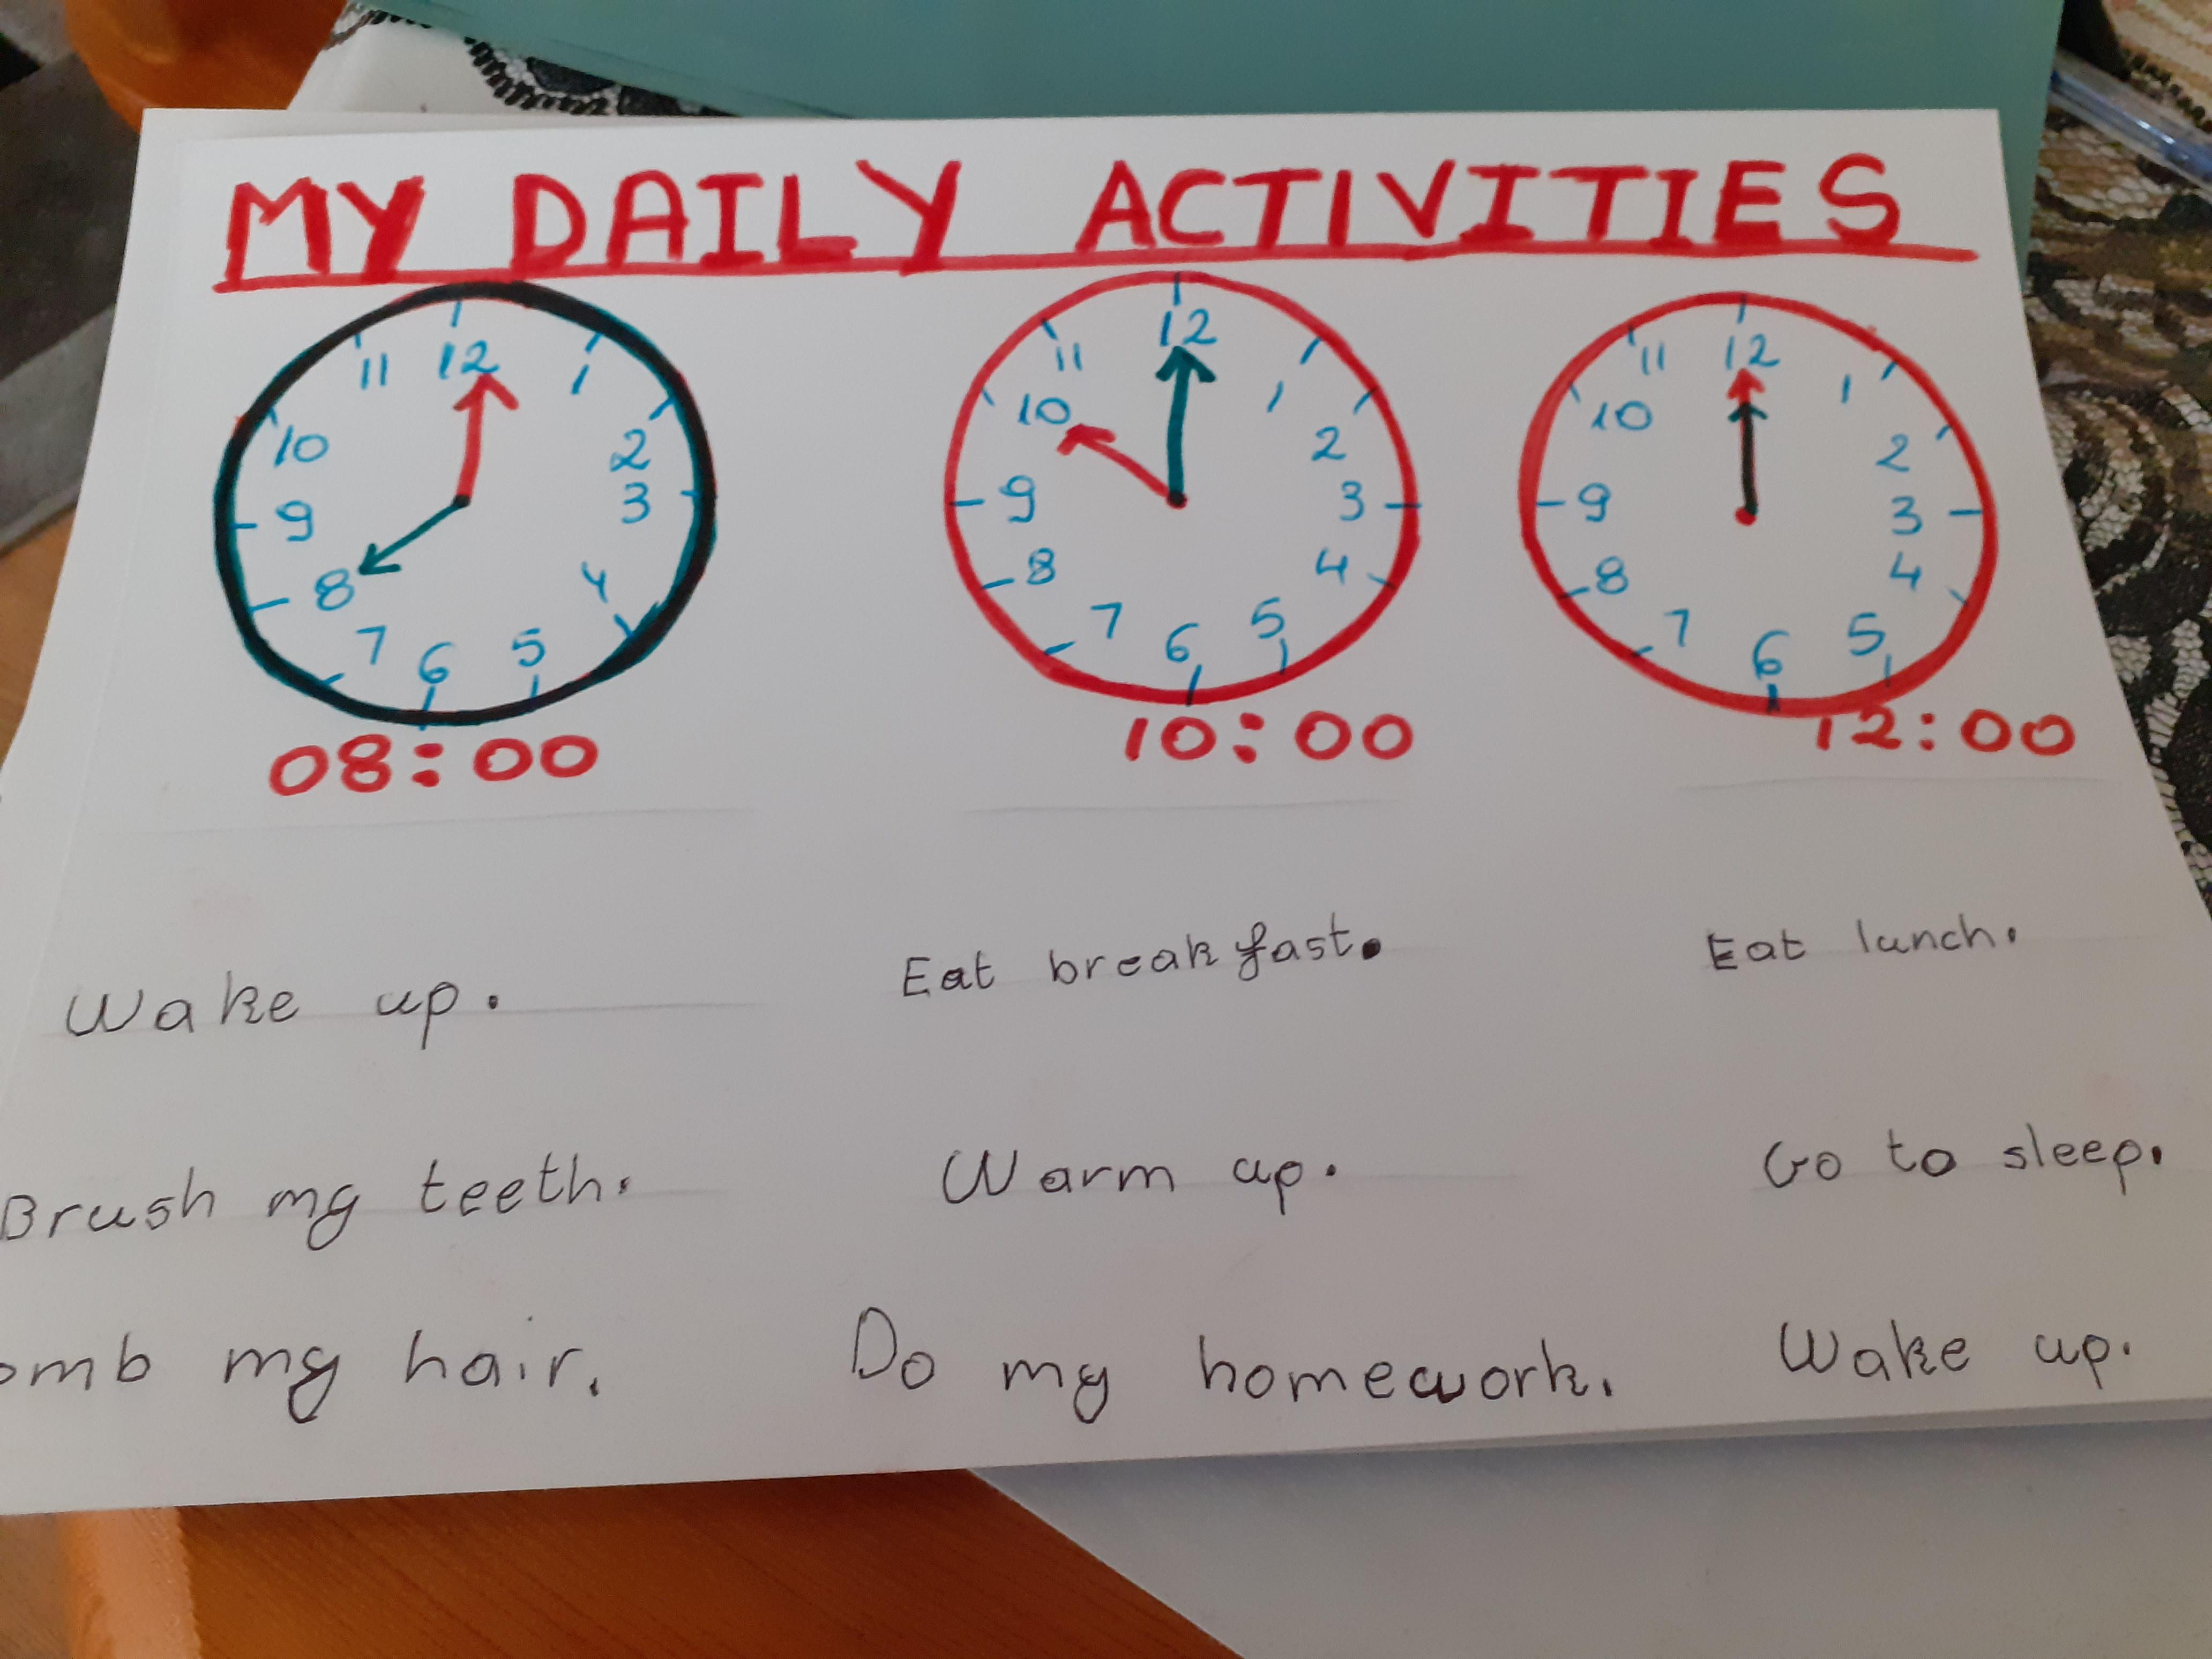 MY DAILY ACTIVITIES
12 1 2 3 4 5 6 7 8 9 10 11
12 1 2 3 4 5 6 7 8 9 10 11
12 1 2 3 4 5 6 7 8 9 10 11
08:00 10:00 12:00
Wake up. Eat breakfast. Eat lunch.
Brush my teeth. Warm up. Go to sleep.
omb my hair. Do my homework. Wake up.